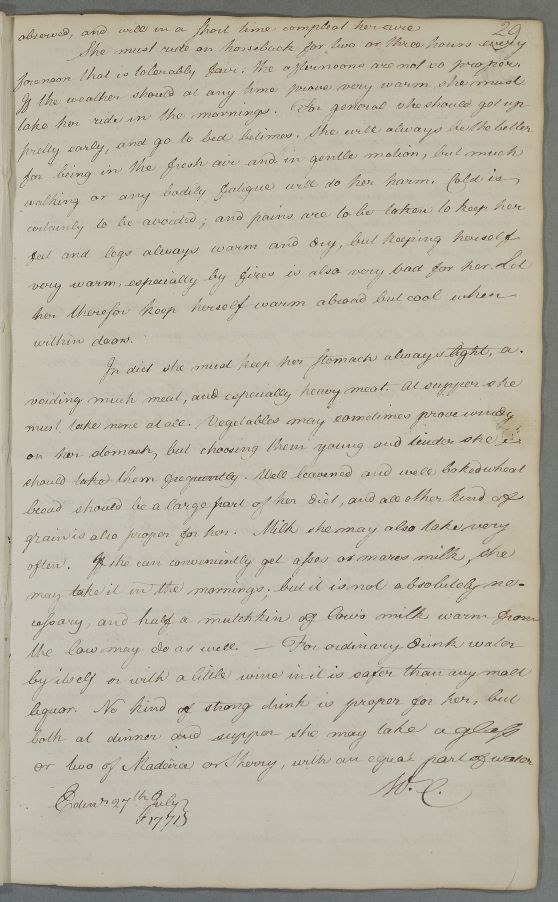 29
observed, and will in a short time compleat her cure
She must ride on horseback for two or three hours every
forenoon that is tolerably fair. the afternoons are not so proper.
If the weather should at any time prove very warm she must
take her ride in the mornings. For general she should get up
pretty early, and go to bed betimes. She will always be the better
for being in the fresh air and in gentle motion, but much
walking or any bodily fatigue will do her harm. Cold is
certainly to be avoided; and pains are to be taken to keep her
feet and legs always warm and dry, but keeping herself
very warm, especially by fires is also very bad for her. Let
her therefor keep herself warm abroad but cool when
within doors.
In diet she must keep her stomach always light, a-
voiding much meat, and especially heavy meat. At supper she
must take none at all. Vegetables may sometimes prove windy
on her stomach, but choosing them young and tender she
should take them frequently. Well leavened and well baked wheat
bread should be a large part of her diet, and all other kind of
grain is also proper for her. Milk she may also take very
often. If she can conveniently get asses or mares milk, she
may take it in the mornings. but it is not absolutely ne-
cessary, and half a mutchkin of Cow's milk warm from
the Cow may do as well. — For ordinary drink water
by itself or with a little wine in it is safer than any malt
liquor. No kind of strong drink is proper for her, but
both at dinner and supper she may take a glass
or two of Madeira or Sherry, with an equal part of water
W. C.
Edinr 27th July
1771